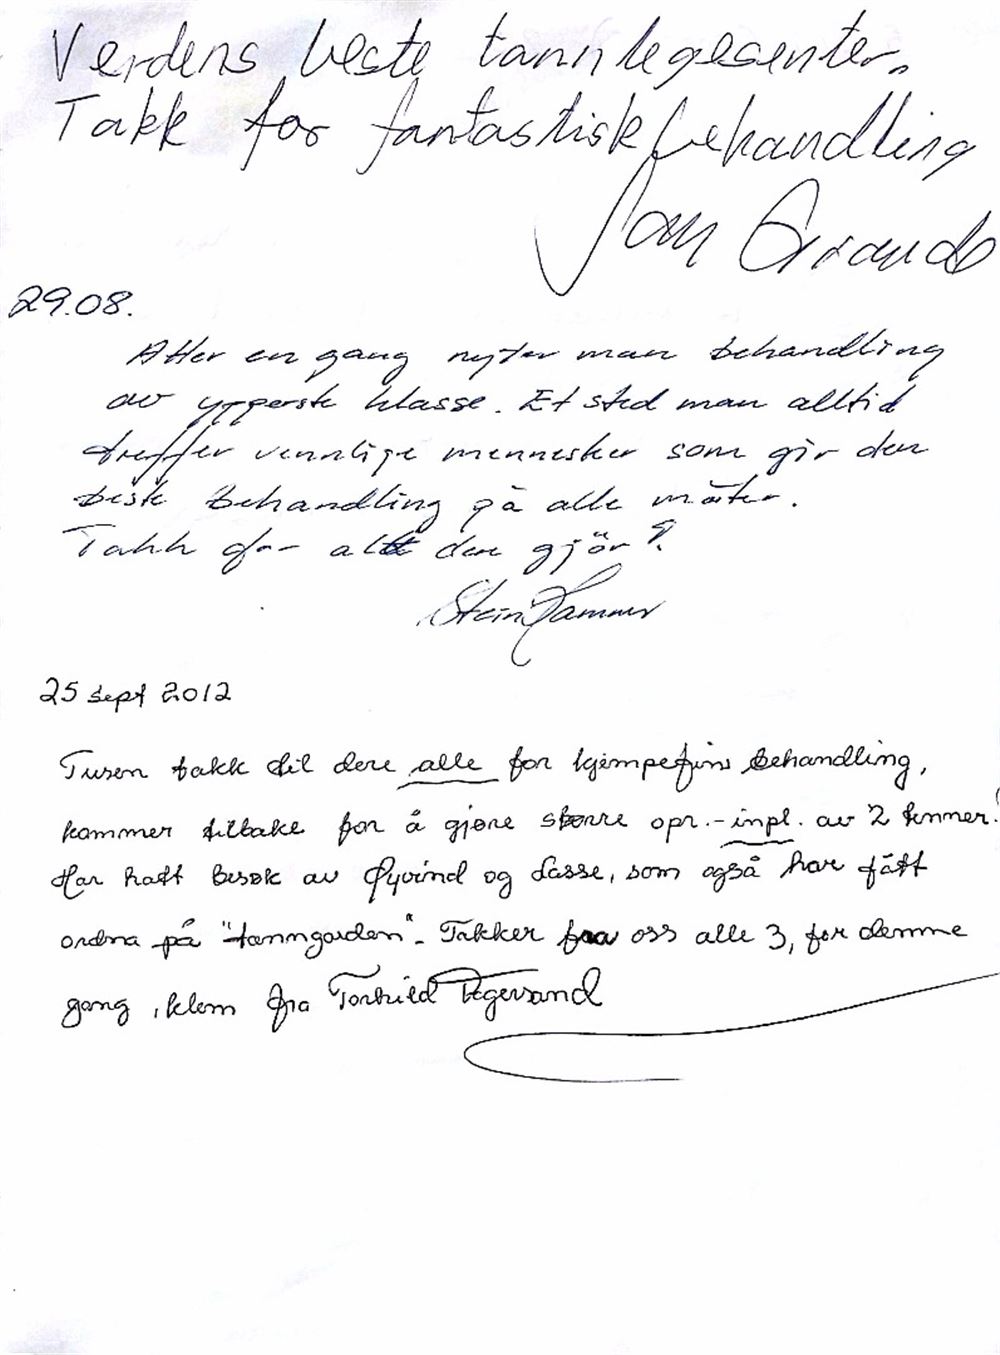 Verdens beste tannlegesenter.
Takk for fantastisk behandling
Jan
29.08.
Atter en gang nyter man behandling
av ypperste klasse. Et sted man alltid
treffer vennlige mennesker som gir den
beste behandling på alle måter.
Takk for alt dere gjör!
Stein Hammer
25 sept 2012
Tusen takk til dere alle for kjempefin behandling,
kommer tilbake for å gjøre større opr. - inpl. av 2 tenner!
Har hatt besøk av Øyvind og Lasse, som også har fått
ordna på "tanngarden". Takker fra oss alle 3, for denne
gang, klem fra Torhild